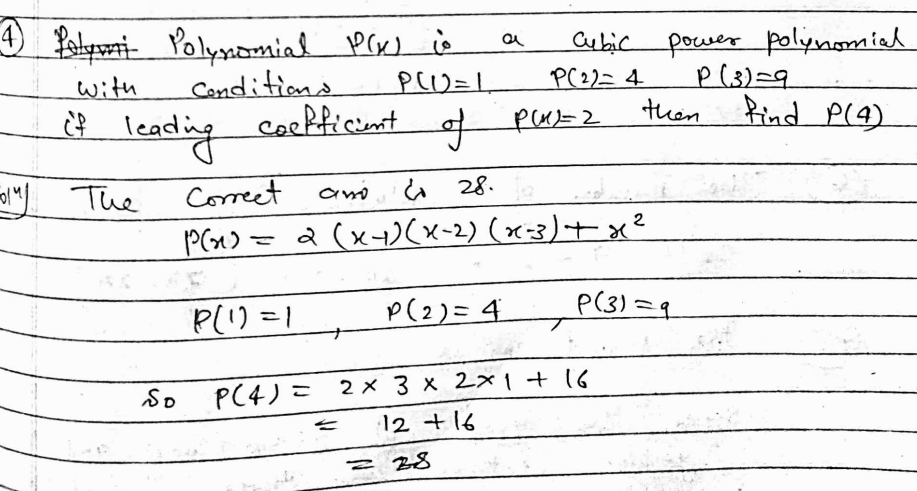 4) Polynomial P(x) is a cubic power polynomial
with conditions P(1)=1 P(2)=4 P(3)=9
if leading coefficient of P(x)=2 then find P(4)
The correct ans is 28.
P(x) = 2 (x-1)(x-2) (x-3) + x²
P(1) = 1 , P(2) = 4 , P(3) = 9
So P(4) = 2 × 3 × 2 × 1 + 16
= 12 + 16
= 28